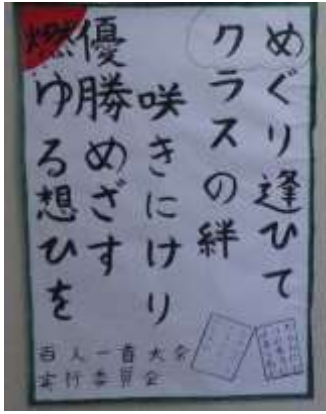 めぐり逢ひて
クラスの絆
咲きにけり
優勝めざす
燃ゆる想ひを
百人一首大会
実行委員会